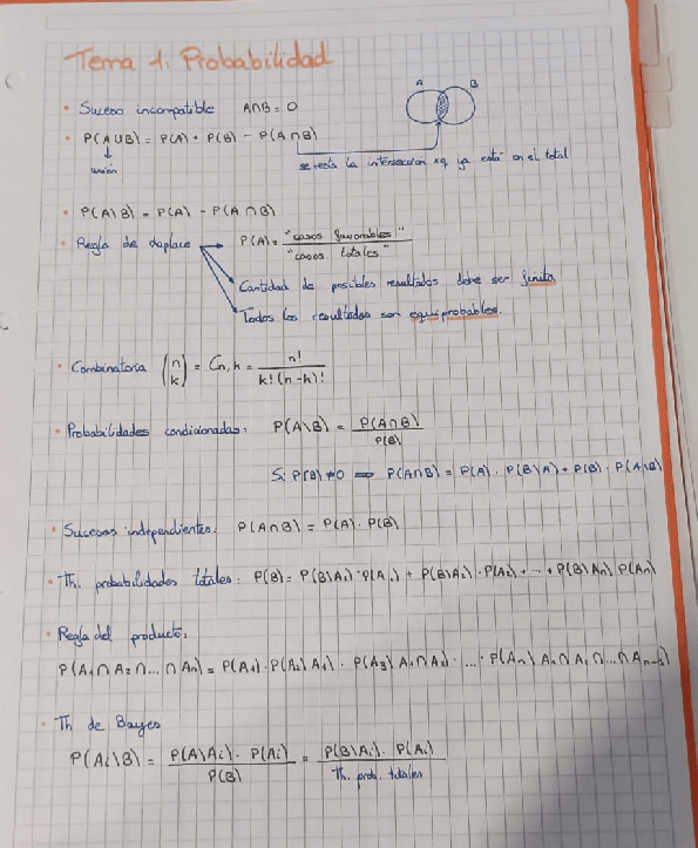 Tema 1: Probabilidad
A B
• Suceso incompatible A∩B = O
• P(A∪B) = P(A) + P(B) - P(A∩B)
unión
se resta la intersección xq ya está en el total
• P(A\B) = P(A) - P(A∩B)
• Regla de daplace P(A) = "casos favorables" / "casos totales"
Cantidad de posibles resultados debe ser finita
Todos los resultados son equiprobables.
• Combinatoria (n k) = Cn,k = n! / k!(n-k)!
• Probabilidades condicionadas: P(A\B) = P(A∩B) / P(B)
Si P(B)≠0 ⟹ P(A∩B) = P(A) · P(B\A) + P(B) · P(A\B)
• Sucesos independientes: P(A∩B) = P(A) · P(B)
• Th. probabilidades totales: P(B) = P(B\A₁) · P(A₁) + P(B\A₂) · P(A₂) + ... + P(B\An) P(An)
• Regla del producto:
P(A₁∩A₂∩...∩An) = P(A₁) · P(A₂\A₁) · P(A₃\A₁∩A₂) · ... · P(An\A₁∩A₂∩...∩An-1)
• Th de Bayes
P(Ai\B) = P(A\Ai) · P(Ai) / P(B) = P(B\Ai) · P(Ai) / Th. prob. totales